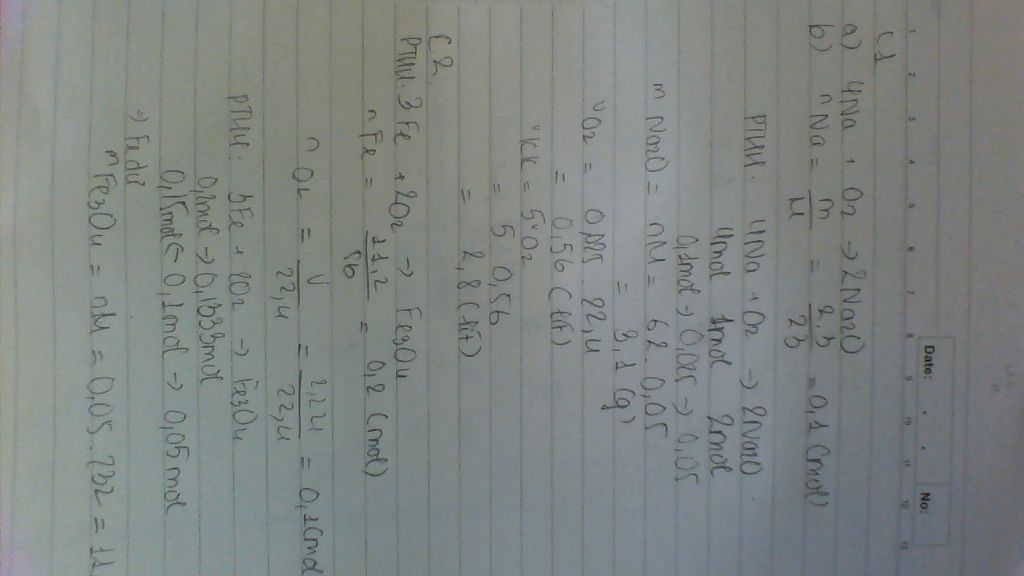 Date:
No:
1 2 3 4 5 6 7 8 9 10 11 12 13
C1
a) 4Na + O2 → 2Na2O
b) nNa = m/M = 2,3/23 = 0,1 (mol)
PTHH. 4Na + O2 → 2Na2O
4mol 1mol 2mol
0,1mol → 0,025 → 0,05
mNa2O = nM = 62 0,05
= 3,1 (g)
VO2 = 0,025 22,4
= 0,56 (lít)
VKK = 5VO2
= 5 0,56
= 2,8 (lít)
C2.
PTHH. 3Fe + 2O2 → Fe3O4
nFe = 11,2/56 = 0,2 (mol)
nO2 = V/22,4 = 2,24/22,4 = 0,1(mol
PTHH. 3Fe + 2O2 → Fe3O4
0,2mol → 0,1333mol
0,15mol ← 0,1mol → 0,05mol
→ Fe dư
mFe3O4 = nM = 0,05 . 232 = 11